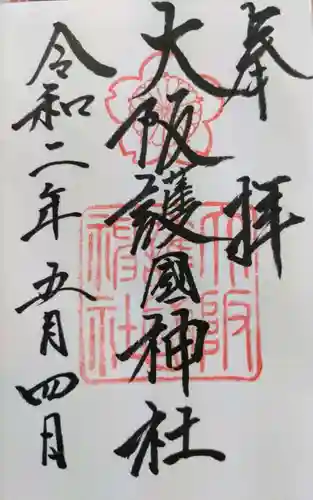 奉拝
大阪護國神社
令和二年五月四日